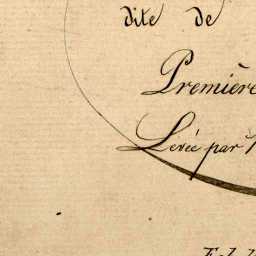 dite de
Première
Levée par